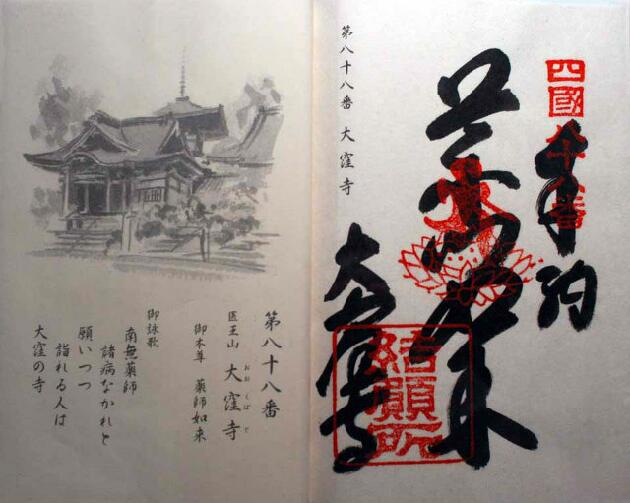 四國八十八番
奉納
薬師如来
大窪寺
結願所
第八十八番 大窪寺
第八十八番
医王山 大窪寺
おおくぼじ
御本尊 薬師如来
御詠歌
南無薬師
諸病なかれと
願いつつ
詣れる人は
大窪の寺